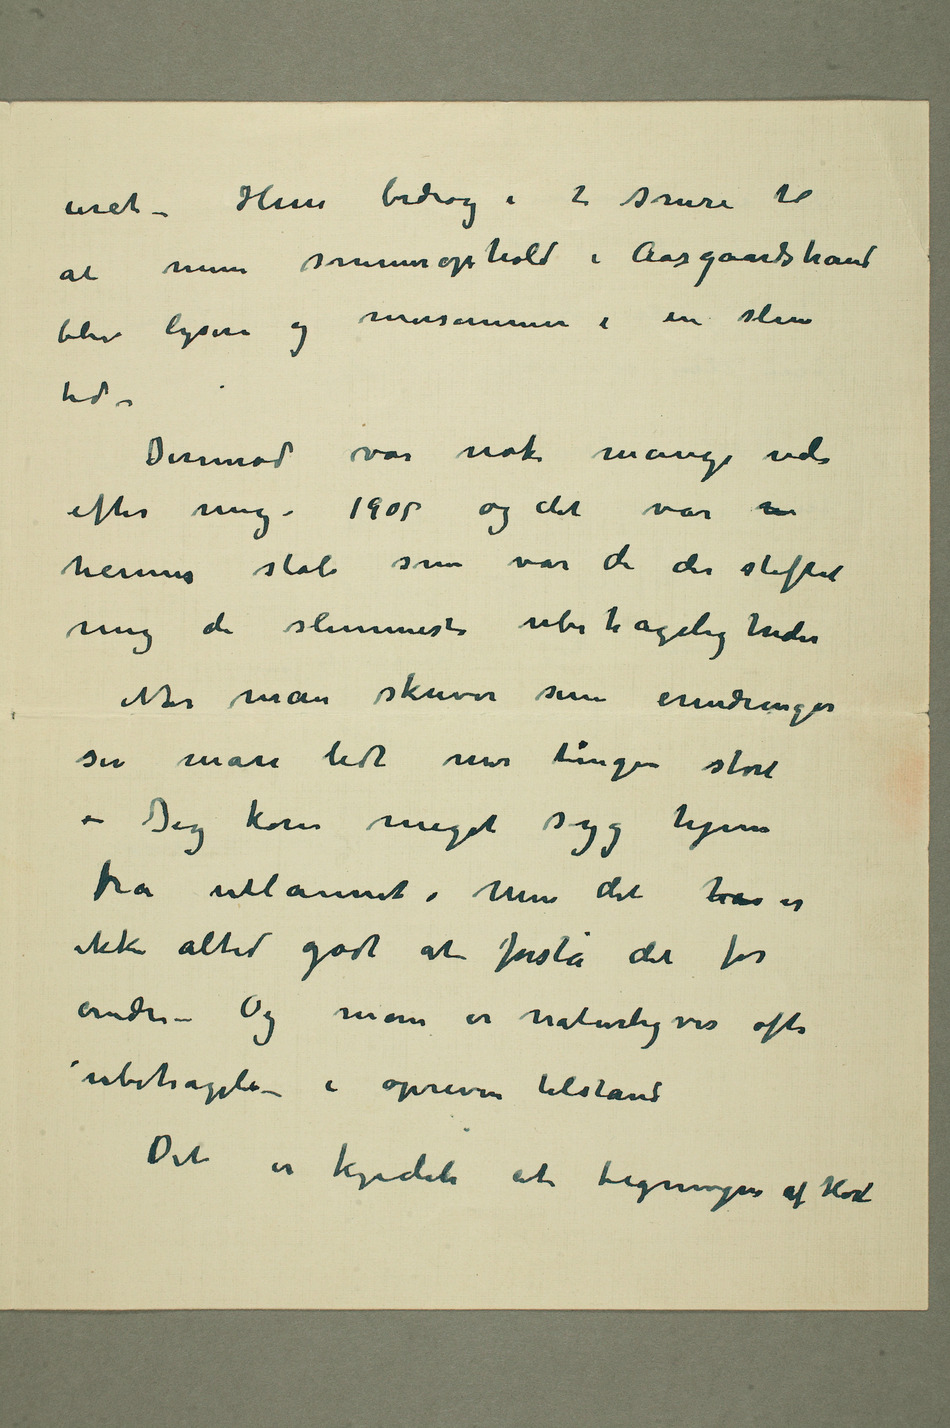 uret – Hun bidrog i 2 somre til
at mine sommerophold i Aasgaardstrand
blev lysere og morsommere i en slem
tid –
Derimod var nok mange ude
efter mig – 1905 og det var
hennes stab som var de der skaffet
mig de slemmeste ubehageligheder
Når man skriver sine erindringer
ser man lidt mer tingen stort
– Jeg kom meget syg hjem
fra utlannet, Men det har er
ikke altid godt at forstå det for
andre – Og man er naturligvis ofte
ubehagelig – i opreven tilstand
Det er kjedeligt at tegningen af